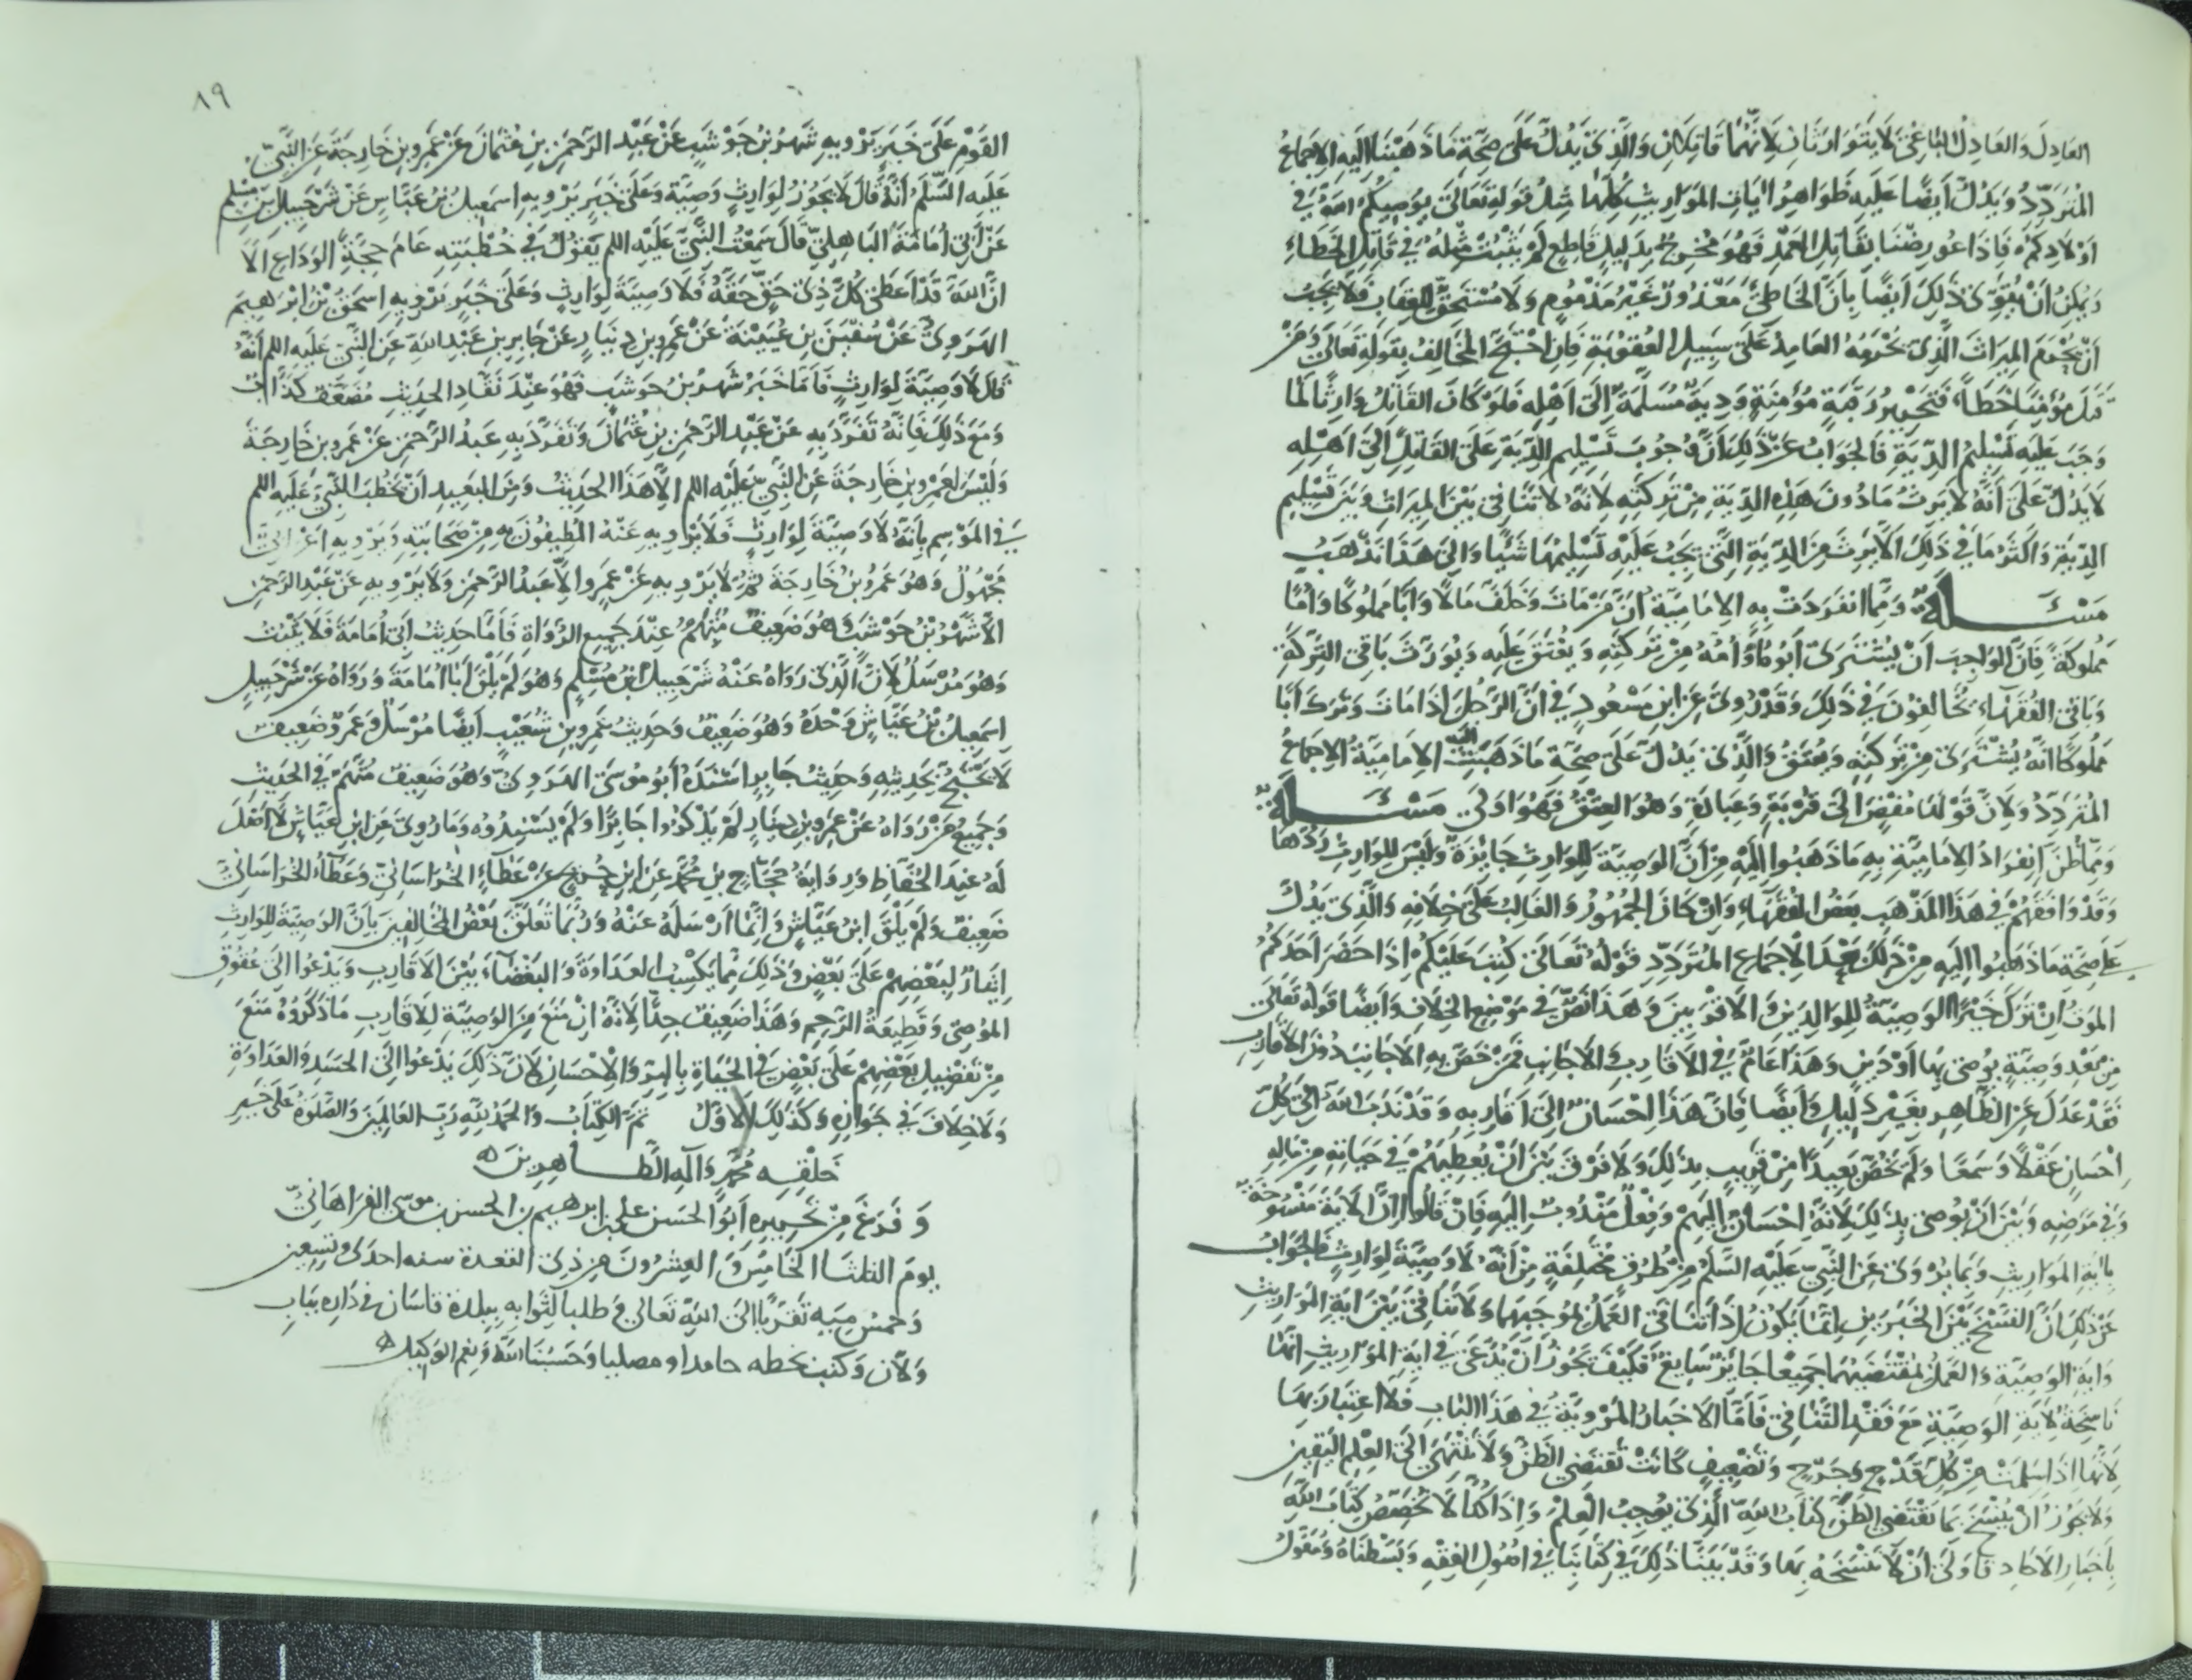 العادلَ والعادلُ الباغيَ لا يتوارثان لانّهما قاتلان والّذى يدلّ على صحّة ما ذهبنا اليه الاجماعُ
المتردّدُ ويدلّ ايضًا عليه ظواهرُ ايات المواريث كلّها مثل قوله تعالى يوصيكم الله فى
اولادكم فاذا عورضنا بقاتل العمد فهو مخرج بدليلٍ قاطعٍ لم يثبت مثلهُ فى قاتل الخطاء
ويمكن ان يقوّى ذلك ايضًا بانّ الخاطئ معذورٌ غير مذمومٍ ولا مستحقٍّ للعقاب فلا يجب
ان يحرم الميراث الّذى يحرمه العامد على سبيل العقوبة فان احتجّ المخالف بقوله تعالى ومن
قتل مؤمنا خطأً فتحرير رقبةٍ مؤمنةٍ ودية مسلّمة الى اهله فلو كان القاتل وارثًا لما
وجب عليه تسليم الدّية فالجواب عن ذلك انّ وجوب تسليم الدّية على القاتل الى اهله
لا يدلّ على انّه لا يرث ما دون هذه الدّية من تركته لانّه لا تنافى بين الميراث وبين تسليم
الدّية واكثر ما فى ذلك الّا يرث من الدّية الّتى يجب عليه تسليمها شيًا والى هذا نذهب
مسئلة وممّا انفردت به الاماميّة انّ من مات وخلّف مالًا وابًا مملوكًا وامًّا
مملوكةً فانّ الواجب ان يشترى ابوه او امّه من تركته ويعتق عليه ويورّث باقى التركة
وباقى الفقهاء يخالفون فى ذلك وقد روى عن ابن مسعود فى انّ الرّجل اذا مات وترك ابًا
مملوكًا انّه يشترى من تركته ويعتق والّذى يدلّ على صحّة ما ذهبت اليه الاماميّة الاجماعُ
المتردّد ولانّ قولنا مفضٍ الى قربةٍ وعبادةٍ وهو العتق فهو اولى مسئلة
وممّا ظنّ انفراد الاماميّة به ما ذهبوا اليه من انّ الوصيّة للوارث جايزة وليس للوارث ردّها
وقد وافقهم فى هذا المذهب بعض الفقهاء وان كان الجمهور والغالب على خلافه والّذى يدلّ
على صحّة ما ذهبوا اليه من ذلك بعد الاجماع المتردّد قوله تعالى كتب عليكم اذا حضر احدكم
الموت ان ترك خيرًا الوصيّة للوالدين والاقربين وهذا نصّ فى موضع الخلاف وايضًا قوله تعالى
من بعد وصيّةٍ يوصى بها او دينٍ وهذا عامّ فى الاقارب والاجانب فمن خصّ به الاجانب دون الاقارب
فقد عدل عن الظّاهر بغير دليلٍ وايضًا فانّ هذا احسان الى اقاربه وقد ندب الله الى كلّ
احسانٍ عقلًا وسمعًا ولم يخصّ بعيدًا من قريبٍ بذلك ولا فرق بين ان يعطيهم فى حياته من ماله
وفى مرضه وبين ان يوصى بذلك لانّه احسان اليهم وفعل مندوب اليه فان قالوا انّ الاية منسوخة
باية المواريث وبما يروى عن النّبىّ عليه السّلم من طرقٍ مختلفةٍ من انّه لا وصيّة لوارثٍ فالجواب
عن ذلك انّ النسخ بين الخبرين انّما يكون اذا تنافى العمل بموجبهما ولا تنافى بين اية المواريث
واية الوصيّة والعمل بمقتضيهما جميعًا جايز سايغ فكيف يجوز ان يدّعى فى اية المواريث انّها
ناسخة لاية الوصيّة مع فقد التنافى فامّا الاخبار المرويّة فى هذا الباب فلا اعتبار بها
لانّها اذا سلمت من كلّ قدحٍ وجرحٍ وتضعيفٍ كانت تقتضى الظنّ ولا تنتهى الى العلم اليقين
ولا يجوز ان ينسخ بما يقتضى الظنّ كتاب الله الّذى يوجب العلم واذا كنّا لا نخصّص كتاب الله
باخبار الاحاد فاولى ان لا ننسخه بها وقد بيّنّا ذلك فى كتابنا فى اصول الفقه وبسطناه ومعوّل
٨٩
القوم على خبر يرويه شهر بن حوشب عن عبد الرّحمن بن عثمان عن عمرو بن خارجة عن النّبىّ
عليه السّلم انّه قال لا يجوز لوارثٍ وصيّة وعلى خبر يرويه اسمعيل بن عيّاس عن شرحبيل بن مسلم
عن ابى امامة الباهلىّ قال سمعت النّبىّ عليه السلم يقول فى خطبته عام حجّة الوداع الا
انّ الله قد اعطى كلّ ذى حقٍّ حقّه فلا وصيّة لوارثٍ وعلى خبر يرويه اسحق بن ابرهيم
الهروىّ عن سفين بن عيينة عن عمرو بن دينار عن جابر بن عبد الله عن النّبىّ عليه السلم انّه
قال لا وصيّة لوارثٍ فامّا خبر شهر بن حوشب فهو عند نقّاد الحديث مضعّف كذّاب
ومع ذلك فانّه تفرّد به عن عبد الرّحمن بن عثمان وتفرّد به عبد الرّحمن عن عمرو بن خارجة
وليس لعمرو بن خارجة عن النّبىّ عليه السلم الّا هذا الحديث ومن البعيد ان يخطب النّبىّ عليه السلم
فى الموسم بانّه لا وصيّة لوارثٍ فلا يرويه عنه المطيفون به من صحابته ويرويه اعرابىّ
مجهول وهو عمرو بن خارجة ثمّ لا يرويه عن عمرو الّا عبد الرّحمن ولا يرويه عن عبد الرّحمن
الّا شهر بن حوشب وهو ضعيف متّهم عند جميع الرّواة فامّا حديث ابى امامة فلا يثبت
وهو مرسل لانّ الّذى رواه عنه شرحبيل بن مسلم وهو لم يلق ابا امامة ورواه عن شرحبيل
اسمعيل بن عيّاش وحده وهو ضعيف وحديث عمرو بن شعيب ايضًا مرسل وعمرو ضعيف
لا يحتجّ بحديثه وحديث جابر اسنده ابو موسى الهروىّ وهو ضعيف متّهم فى الحديث
وجميع من رواه عن عمرو بن دينار لم يذكروا جابرًا ولم يسندوه وما روى عن ابن عبّاس لا اصل
له عند الحفّاظ ورواية حجّاج بن محمّد عن ابن جريج عن عطاء الخراسانىّ وعطاء الخراسانىّ
ضعيف ولم يلق ابن عبّاس وانّما ارسله عنه وربّما تعلّق بعض المخالفين بانّ الوصيّة للوارث
ايثار لبعضهم على بعضٍ وذلك ممّا يكسب العداوة والبغضاء بين الاقارب ويدعوا الى عقوق
الموصى وقطيعة الرّحم وهذا ضعيف جدًّا لانّه ان منع من الوصيّة للاقارب ما ذكروه منع
من تفضيل بعضهم على بعضٍ فى الحياة بالبرّ والاحسان لانّ ذلك يدعوا الى الحسد والعداوة
ولا خلاف فى جوازه وكذلك الاوّل تمّ الكتاب والحمد لله ربّ العالمين والصّلوة على خير
خلقه محمّد واله الطّاهرين
وفرغ من تحريره ابو الحسن على بن ابرهيم بن الحسن بن موسى الفراهانىّ
يوم الثلثا الخامس والعشرون من ذى القعدة سنه احدى وتسعين
وخمس ميه تقرّبا الى الله تعالى طلبا لثوابه ببلدة قاسان فى داره بباب
ولان وكتب بخطه حامدا ومصليا وحسبنا الله ونعم الوكيل